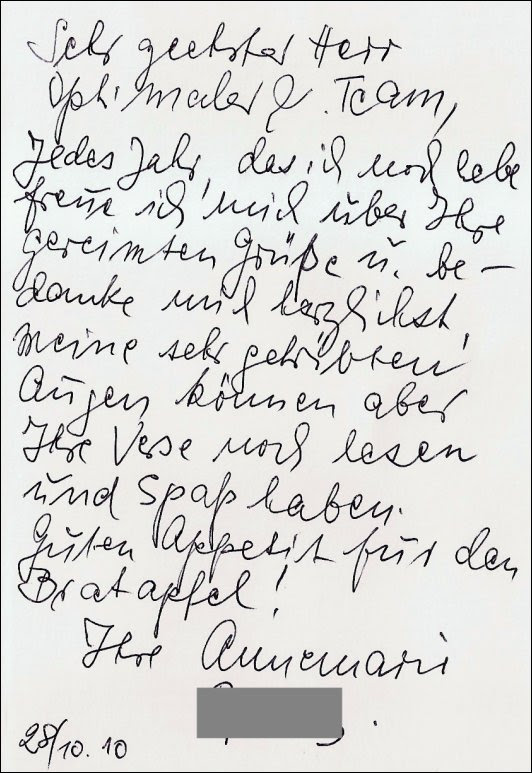 Sehr geehrter Herr
Optimaler & Team,
Jedes Jahr, das ich noch lebe
freue ich mich über Ihre
gereimten Grüße u. be-
danke mich herzlichst,
meine sehr getrübten
Augen können aber
Ihre Verse noch lesen
und Spaß haben.
Guten Appetit für den
Bratapfel!
Ihre Annemarie
28/10.10